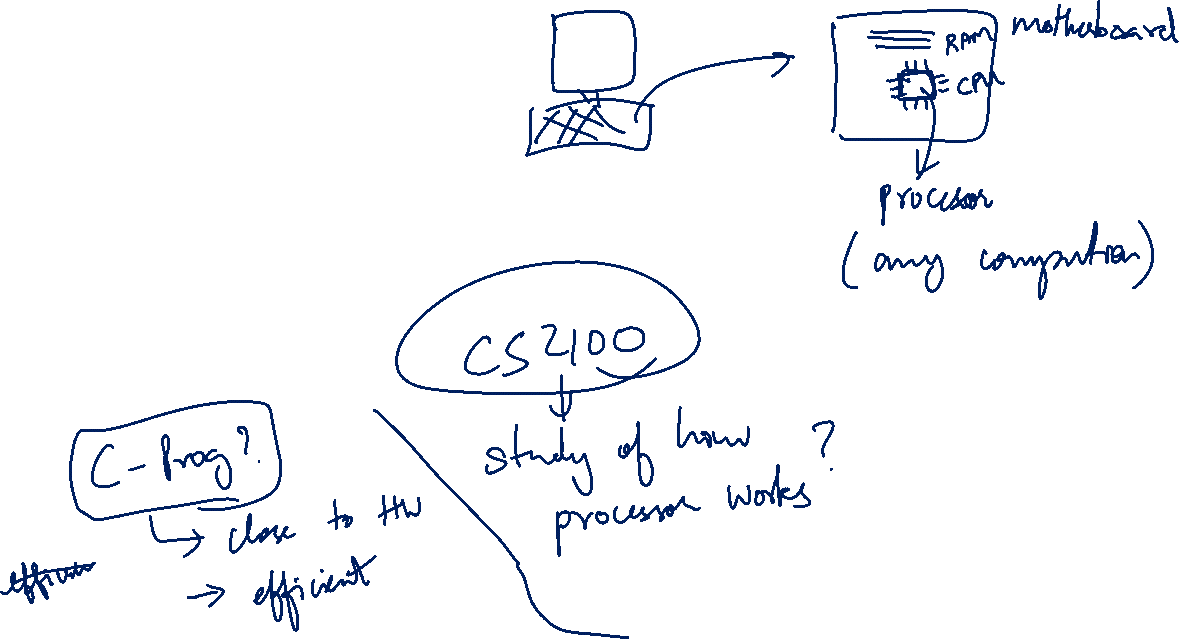 motherboard
RAM
CPU
processor
(any computation)
CS2100
study of how
processor works?
C-Prog?
→ close to HW
efficient
→ efficient